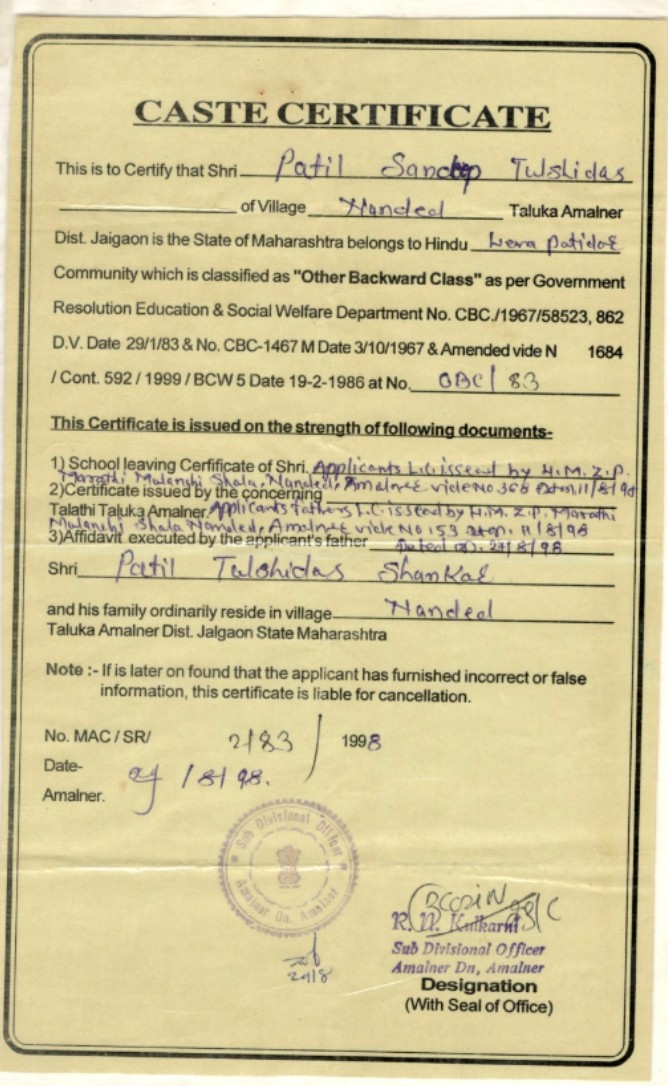 CASTE CERTIFICATE
This is to Certify that Shri Patil Sandeep Tulshidas
of Village Nanded Taluka Amalner
Dist. Jaigaon is the State of Maharashtra belongs to Hindu Leva Patidar
Community which is classified as "Other Backward Class" as per Government
Resolution Education & Social Welfare Department No. CBC./1967/58523, 862
D.V. Date 29/1/83 & No. CBC-1467 M Date 3/10/1967 & Amended vide N 1684
/ Cont. 592 / 1999 / BCW 5 Date 19-2-1986 at No. OBC/ 83
This Certificate is issued on the strength of following documents-
1) School leaving Certificate of Shri. Applicants L.C. issued by H.M. Z.P.
Marathi Mulanshi Shala, Nanded, Amalner vide No 366 11/8/98
2) Certificate issued by the concerning
Talathi Taluka Amalner. Applicants fathers L.C. issued by H.M. Z.P. Marathi
Mulanshi Shala Nanded, Amalner vide No 153 11/8/98
3) Affidavit executed by the applicant's father Dated 24/8/98
Shri Patil Tulshidas Shankar
and his family ordinarily reside in village Nanded
Taluka Amalner Dist. Jalgaon State Maharashtra
Note :- If is later on found that the applicant has furnished incorrect or false
information, this certificate is liable for cancellation.
No. MAC / SR/ 2/83 / 1998
Date- /8/98.
Amalner.
Sub Divisional Officer
Amalner Dn. Amalner
R. N. Kulkarni
Sub Divisional Officer
Amalner Dn, Amalner
Designation
(With Seal of Office)